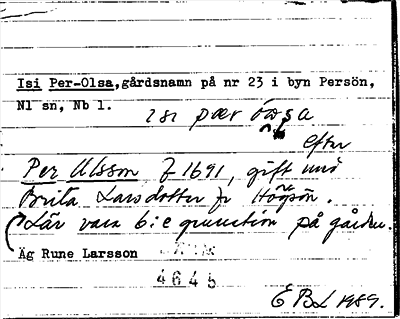 Isi Per-Olsa,gårdsnamn på nr 23 i byn Persön,
Nl sn, Nb l.
isi pær
efter
Per Olsson f 1691, gift med
Brita Larsdotter fr Högsön.
Lär vara 6:e generation på gården.
Äg Rune Larsson
4645
EBL 1989.